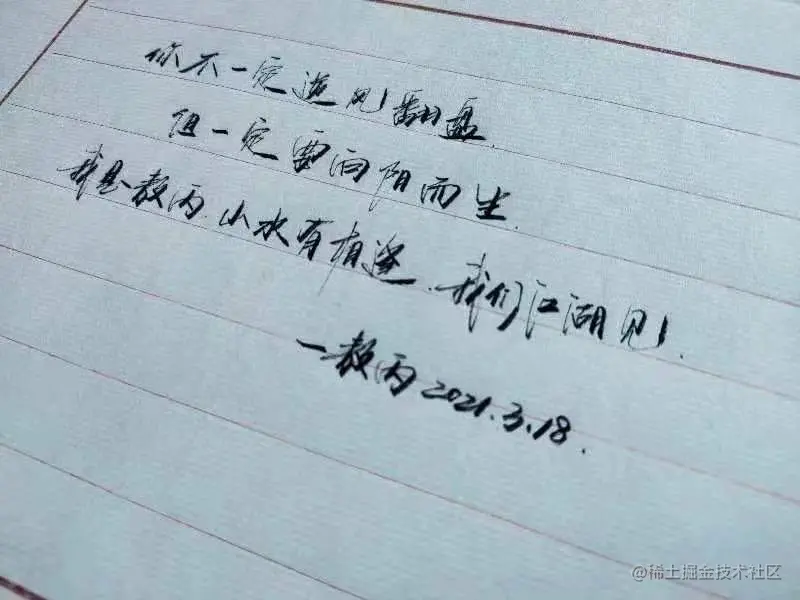 你不一定逆风翻盘
但一定要向阳而生.
我是敖丙.山水有相逢.我们江湖见!
一敖丙 2021.3.18.
@稀土掘金技术社区